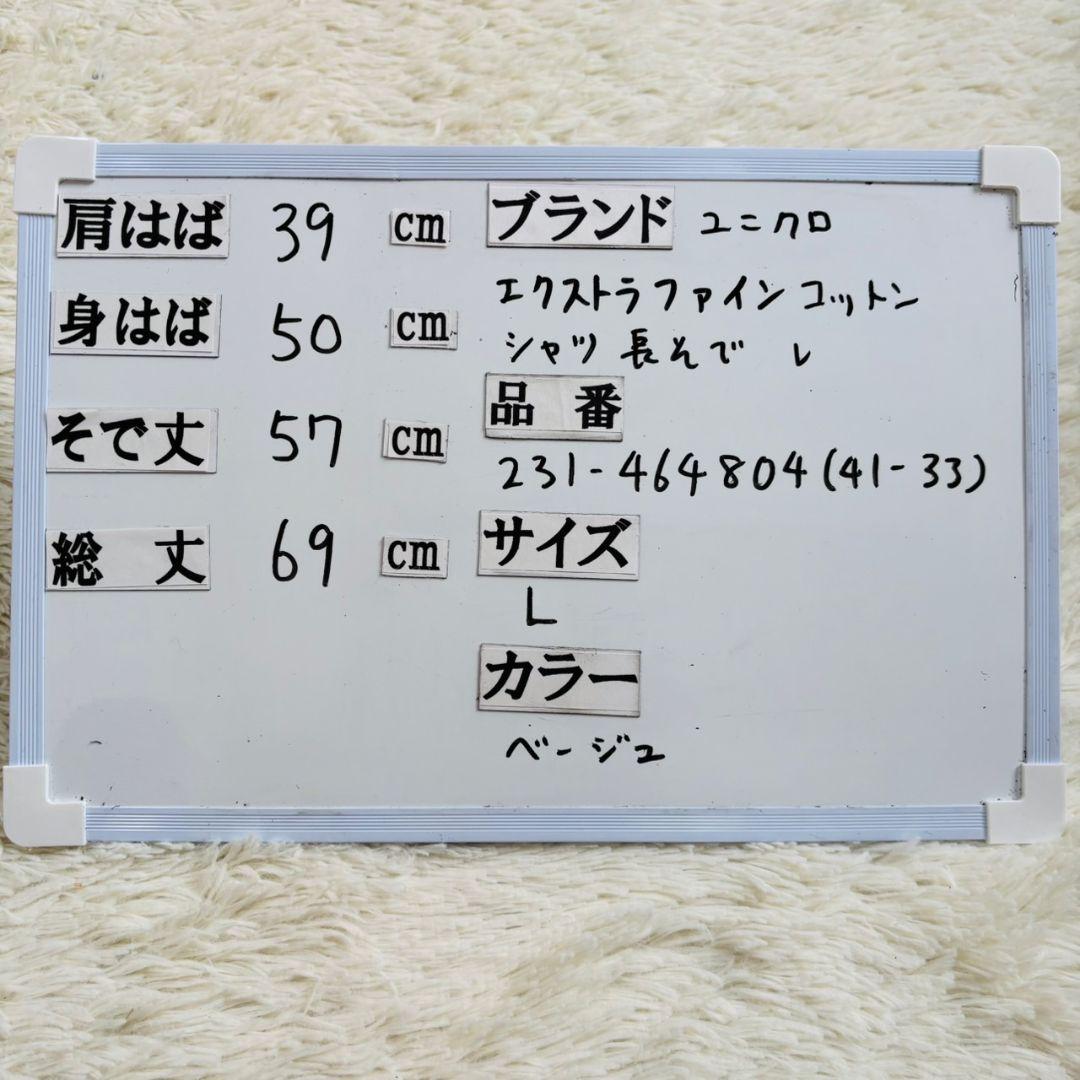 肩はば 39 cm
身はば 50 cm
そで丈 57 cm
総 丈 69 cm
ブランド ユニクロ
エクストラファインコットン
シャツ 長そで L
品 番
231-464804(41-33)
サイズ
L
カラー
ベージュ